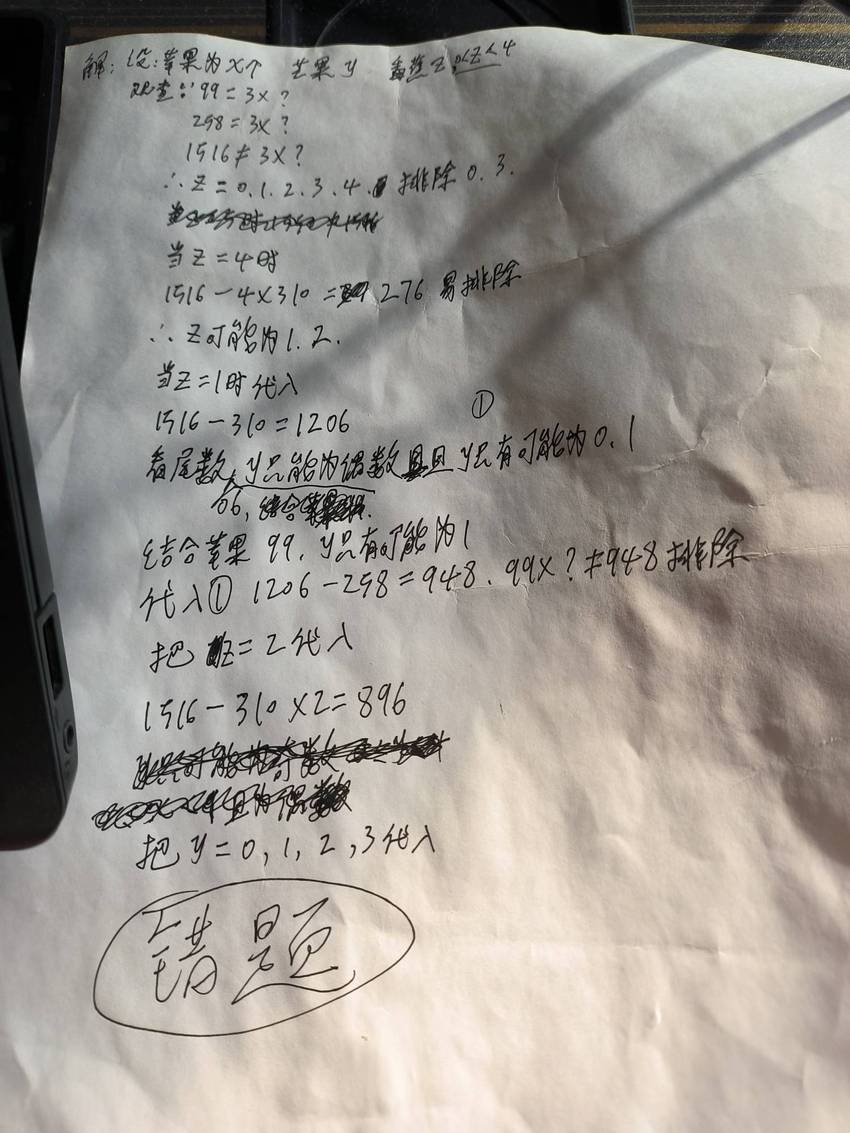 解:设:苹果为x个 芒果y 香蕉z 0<z<4
观查:'99=3x?
298=3x?
1516≠3x?
∴z=0.1.2.3.4. 排除0.3.
当z=4时
1516-4×310= 276 易排除
∴z可能为1.2.
当z=1时代入
1516-310=1206 ①
看尾数,y只能为偶数且y只有可能为0.1
06,结合
结合苹果99.y只有可能为1
代入① 1206-298=948.99x?≠948排除
把z=2代入
1516-310×2=896
把y=0,1,2,3代入
错题